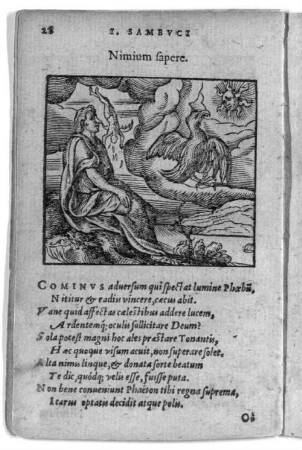 28 I. SAMBVCI
Nimium sapere.
COMINVS adversum qui spectat lumine Phœbũ,
Nititur & radiis vincere, cæcus abit.
Vane quid affectas cælestibus addere lucem,
Ardentemq; oculis sollicitare Deum?
Sola potest magni hoc ales præstare Tonantis,
Hæc quoque visum acuit, non superare solet.
Alta nimis linque, & donata sorte beatum
Te dic, quódq; velis esse, fuisse puta.
Non bene conveniunt Phaëton tibi regna suprema,
Icarus optatis decidit atque polis.